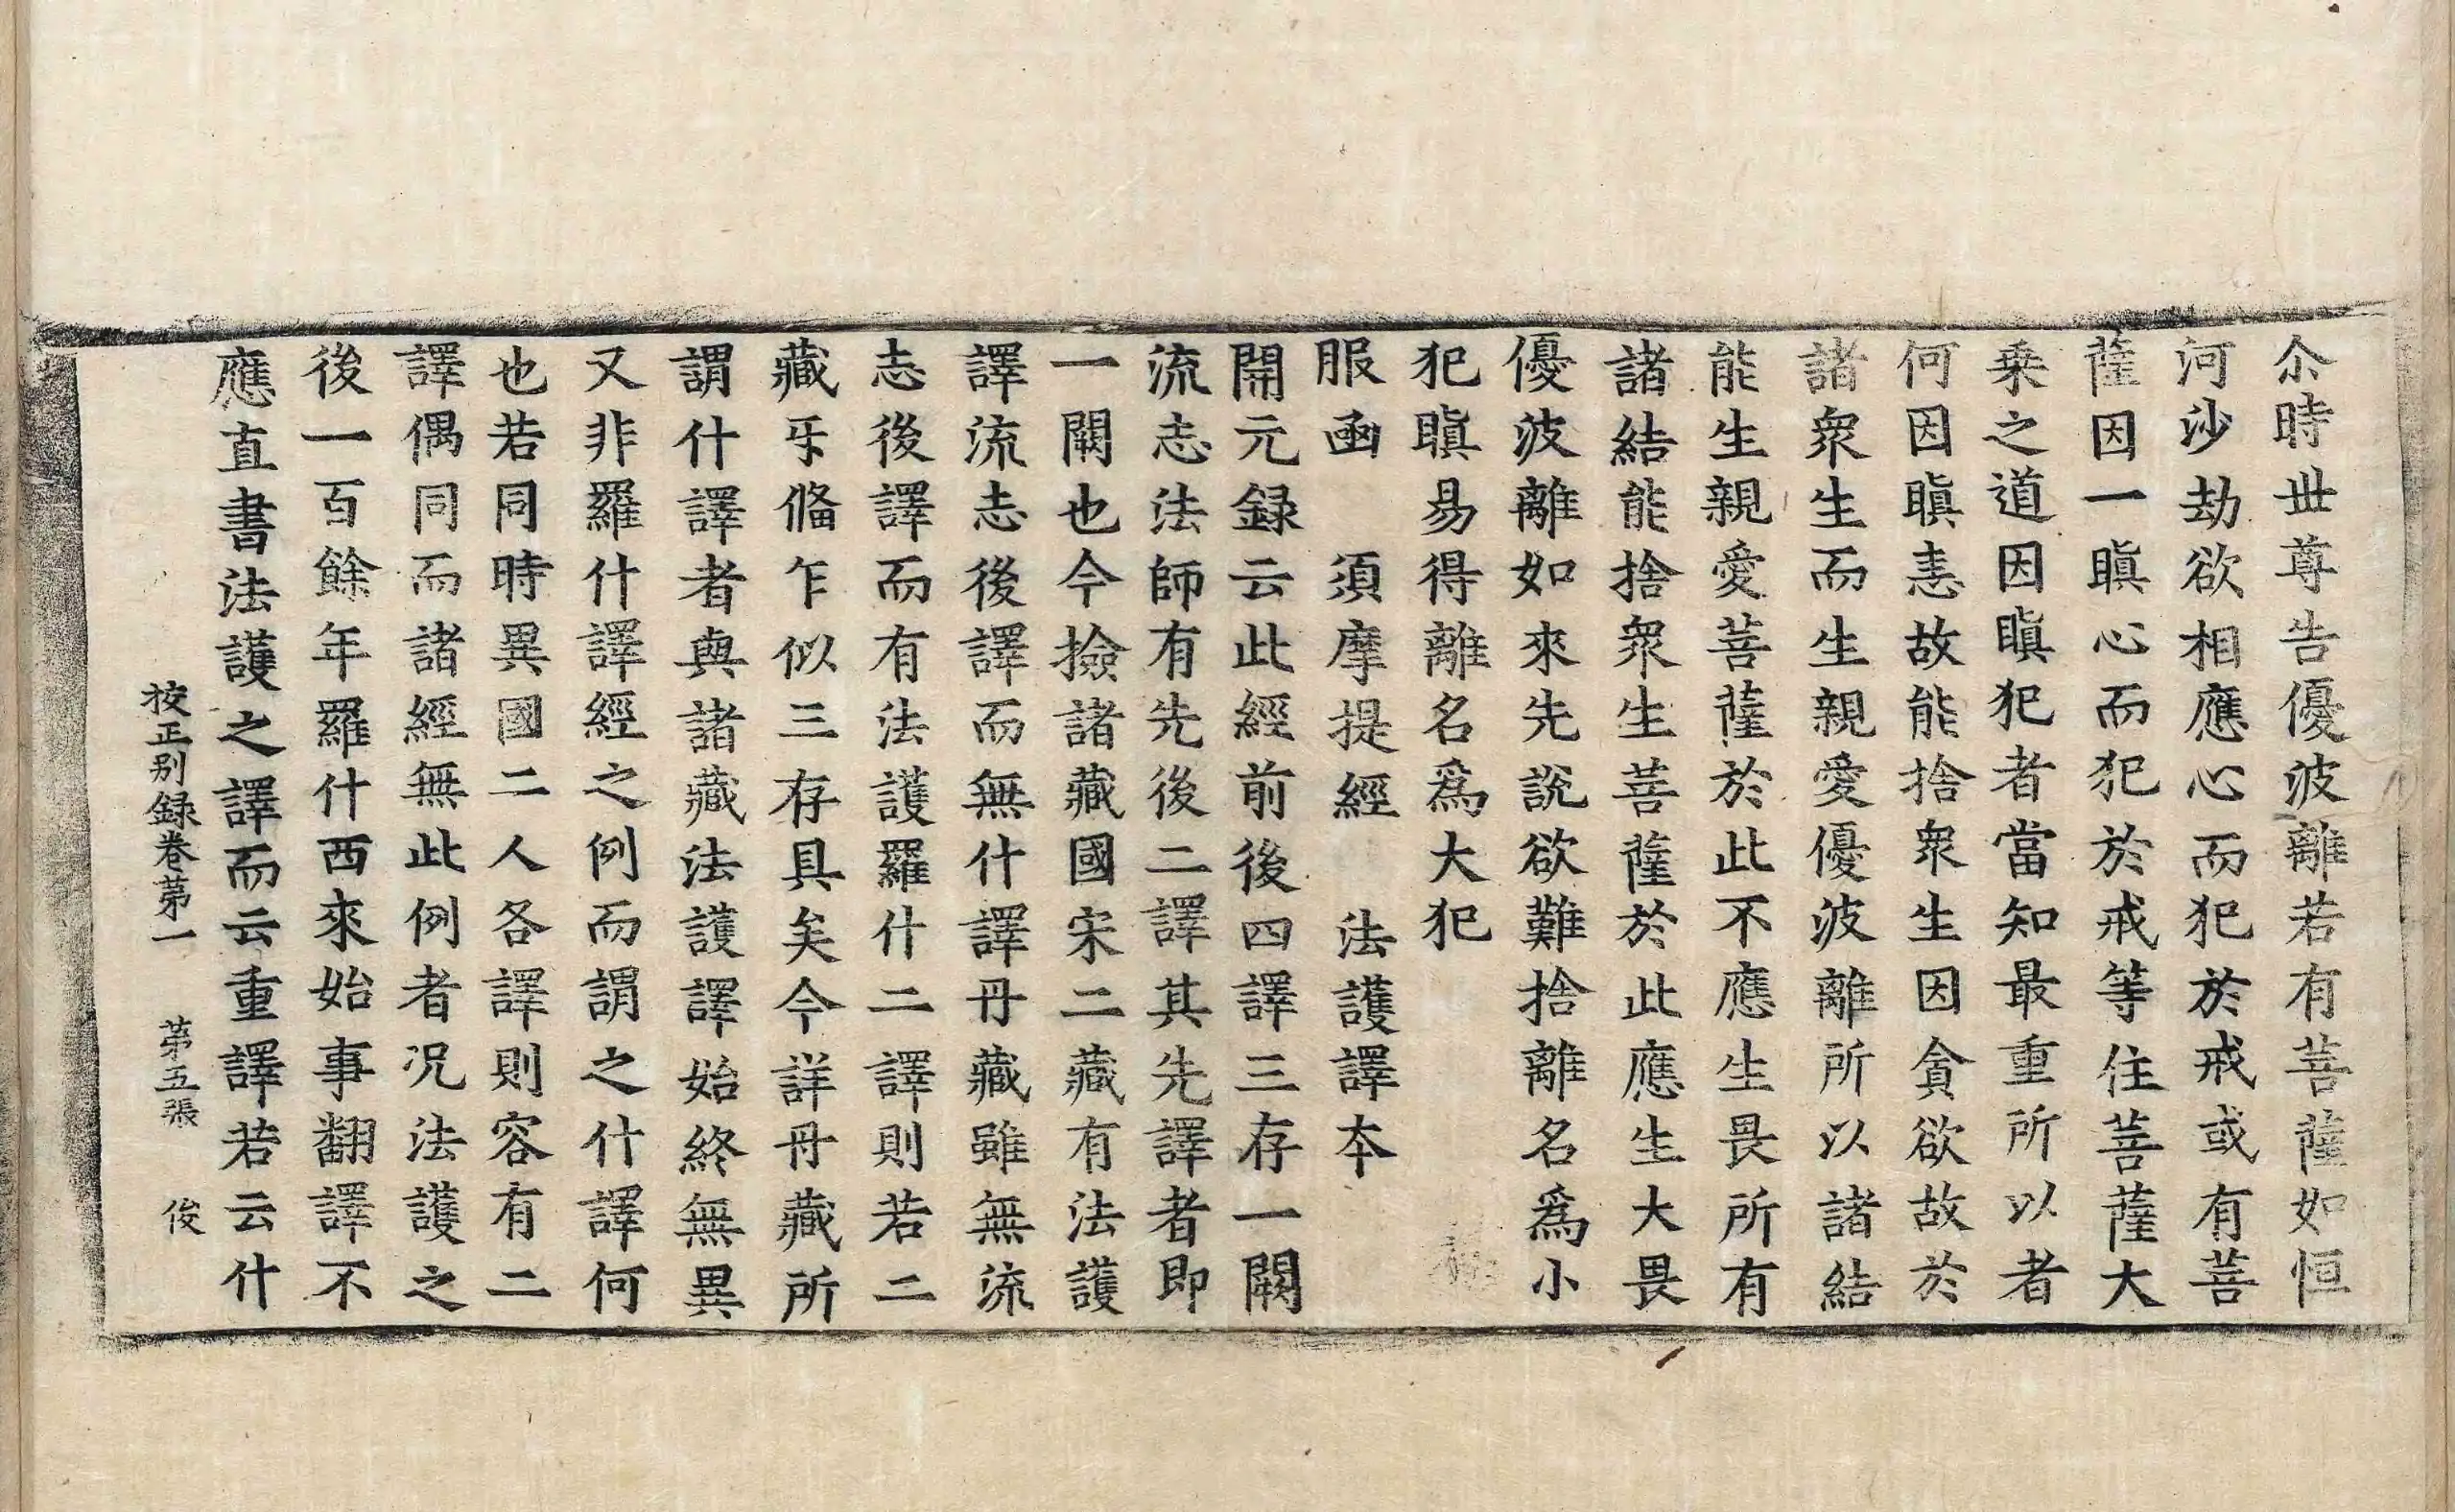 尒時丗尊告優波離若有菩薩如恒
河沙劫欲相應心而犯於戒或有菩
薩因一瞋心而犯於戒等住菩薩大
乗之道因瞋犯者當知最重所以者
何因瞋恚故能捨衆生因貪欲故於
諸衆生而生親愛優波離所以諸結
能生親愛菩薩於此不應生畏所有
諸結能捨衆生菩薩於此應生大畏
優波離如來先說欲難捨離名爲小
犯瞋易得離名爲大犯
服函　須摩提經　法護譯本
開元録云此經前後四譯三存一闕
流志法師有先後二譯其先譯者即
一闕也今撿諸藏國宋二藏有法護
譯流志後譯而無什譯丹藏雖無流
志後譯而有法護羅什二譯則若二
藏㸦俻乍似三存具矣今詳丹藏所
謂什譯者與諸藏法護譯始終無異
又非羅什譯經之例而謂之什譯何
也若同時異國二人各譯則容有二
譯偶同而諸經無此例者况法護之
後一百餘年羅什西來始事翻譯不
應直書法護之譯而云重譯若云什
挍正别録卷第一　第五張　俊